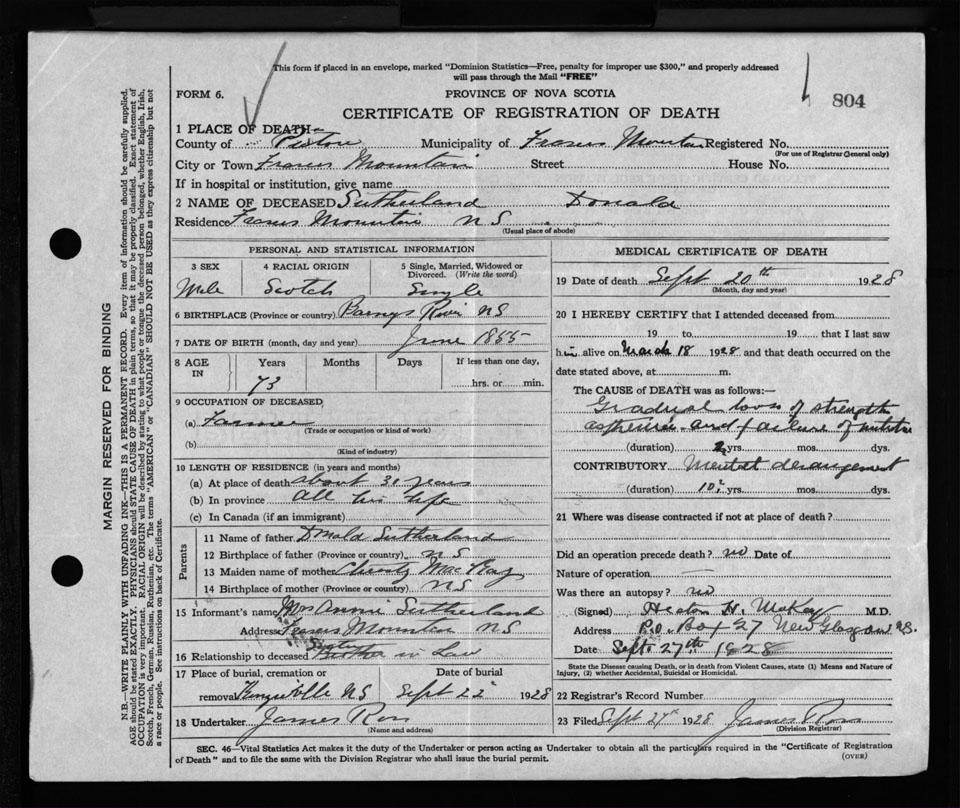 This form if placed in an envelope, marked "Dominion Statistics—Free, penalty for improper use $300," and properly addressed
will pass through the Mail "FREE"
FORM 6.
PROVINCE OF NOVA SCOTIA
804
CERTIFICATE OF REGISTRATION OF DEATH
1 PLACE OF DEATH—
County of Pictou Municipality of Frasers Mountain Registered No.
(For use of Registrar General only)
City or Town Frasers Mountain Street House No.
If in hospital or institution, give name
2 NAME OF DECEASED Sutherland Donald
Residence Frasers Mountain NS
(Usual place of abode)
PERSONAL AND STATISTICAL INFORMATION
3 SEX 4 RACIAL ORIGIN 5 Single, Married, Widowed or Divorced. (Write the word)
Male Scotch Single
6 BIRTHPLACE (Province or country) Barnys River NS
7 DATE OF BIRTH (month, day and year) June 1855
8 AGE IN Years Months Days If less than one day,
73 hrs. or min.
9 OCCUPATION OF DECEASED
(a) Farmer
(Trade or occupation or kind of work)
(b)
(Kind of industry)
10 LENGTH OF RESIDENCE (in years and months)
(a) At place of death about 30 years
(b) In province all his life
(c) In Canada (if an immigrant)
Parents
11 Name of father Donald Sutherland
12 Birthplace of father (Province or country) NS
13 Maiden name of mother Christy MacKay
14 Birthplace of mother (Province or country) NS
15 Informant's name Mrs Annie Sutherland
Address Frasers Mountain NS
16 Relationship to deceased Sister in Law
17 Place of burial, cremation or Date of burial
removal Kenzieville NS Sept 22 1928
18 Undertaker James Ross
(Name and address)
MEDICAL CERTIFICATE OF DEATH
19 Date of death Sept 20th 1928
(Month, day and year)
20 I HEREBY CERTIFY that I attended deceased from
19 to 19 that I last saw
him alive on March 18 1928 and that death occurred on the
date stated above, at m.
The CAUSE of DEATH was as follows:—
Gradual loss of strength
and failure of nutrition
(duration) 2 yrs. mos. dys.
CONTRIBUTORY Mental derangement
(duration) 10? yrs. mos. dys.
21 Where was disease contracted if not at place of death?
Did an operation precede death? no Date of
Nature of operation —
Was there an autopsy? no
(Signed) H. McKay M.D.
Address P.O. Box 27 New Glasgow NS.
Date Sept 27th 1928
State the Disease causing Death, or in death from Violent Causes, state (1) Means and Nature of
Injury, (2) whether Accidental, Suicidal or Homicidal.
22 Registrar's Record Number
23 Filed Sept 27th 1928 James Ross
(Division Registrar)
SEC. 46—Vital Statistics Act makes it the duty of the Undertaker or person acting as Undertaker to obtain all the particulars required in the "Certificate of Registration
of Death" and to file the same with the Division Registrar who shall issue the burial permit.
(OVER)
MARGIN RESERVED FOR BINDING
N.B.—WRITE PLAINLY WITH UNFADING INK—THIS IS A PERMANENT RECORD. Every item of information should be carefully supplied.
AGE should be stated EXACTLY. PHYSICIANS should STATE CAUSE OF DEATH in plain terms, so that it may be properly classified. Exact statement of
OCCUPATION is very important. RACIAL ORIGIN will be described by stating to what people or tongue the deceased person belonged, whether English, Irish,
Scotch, French, German, Russian, Ruthenian, etc. The terms "AMERICAN" or "CANADIAN" SHOULD NOT BE USED as they express citizenship but not
a race or people. See instructions on back of Certificate.